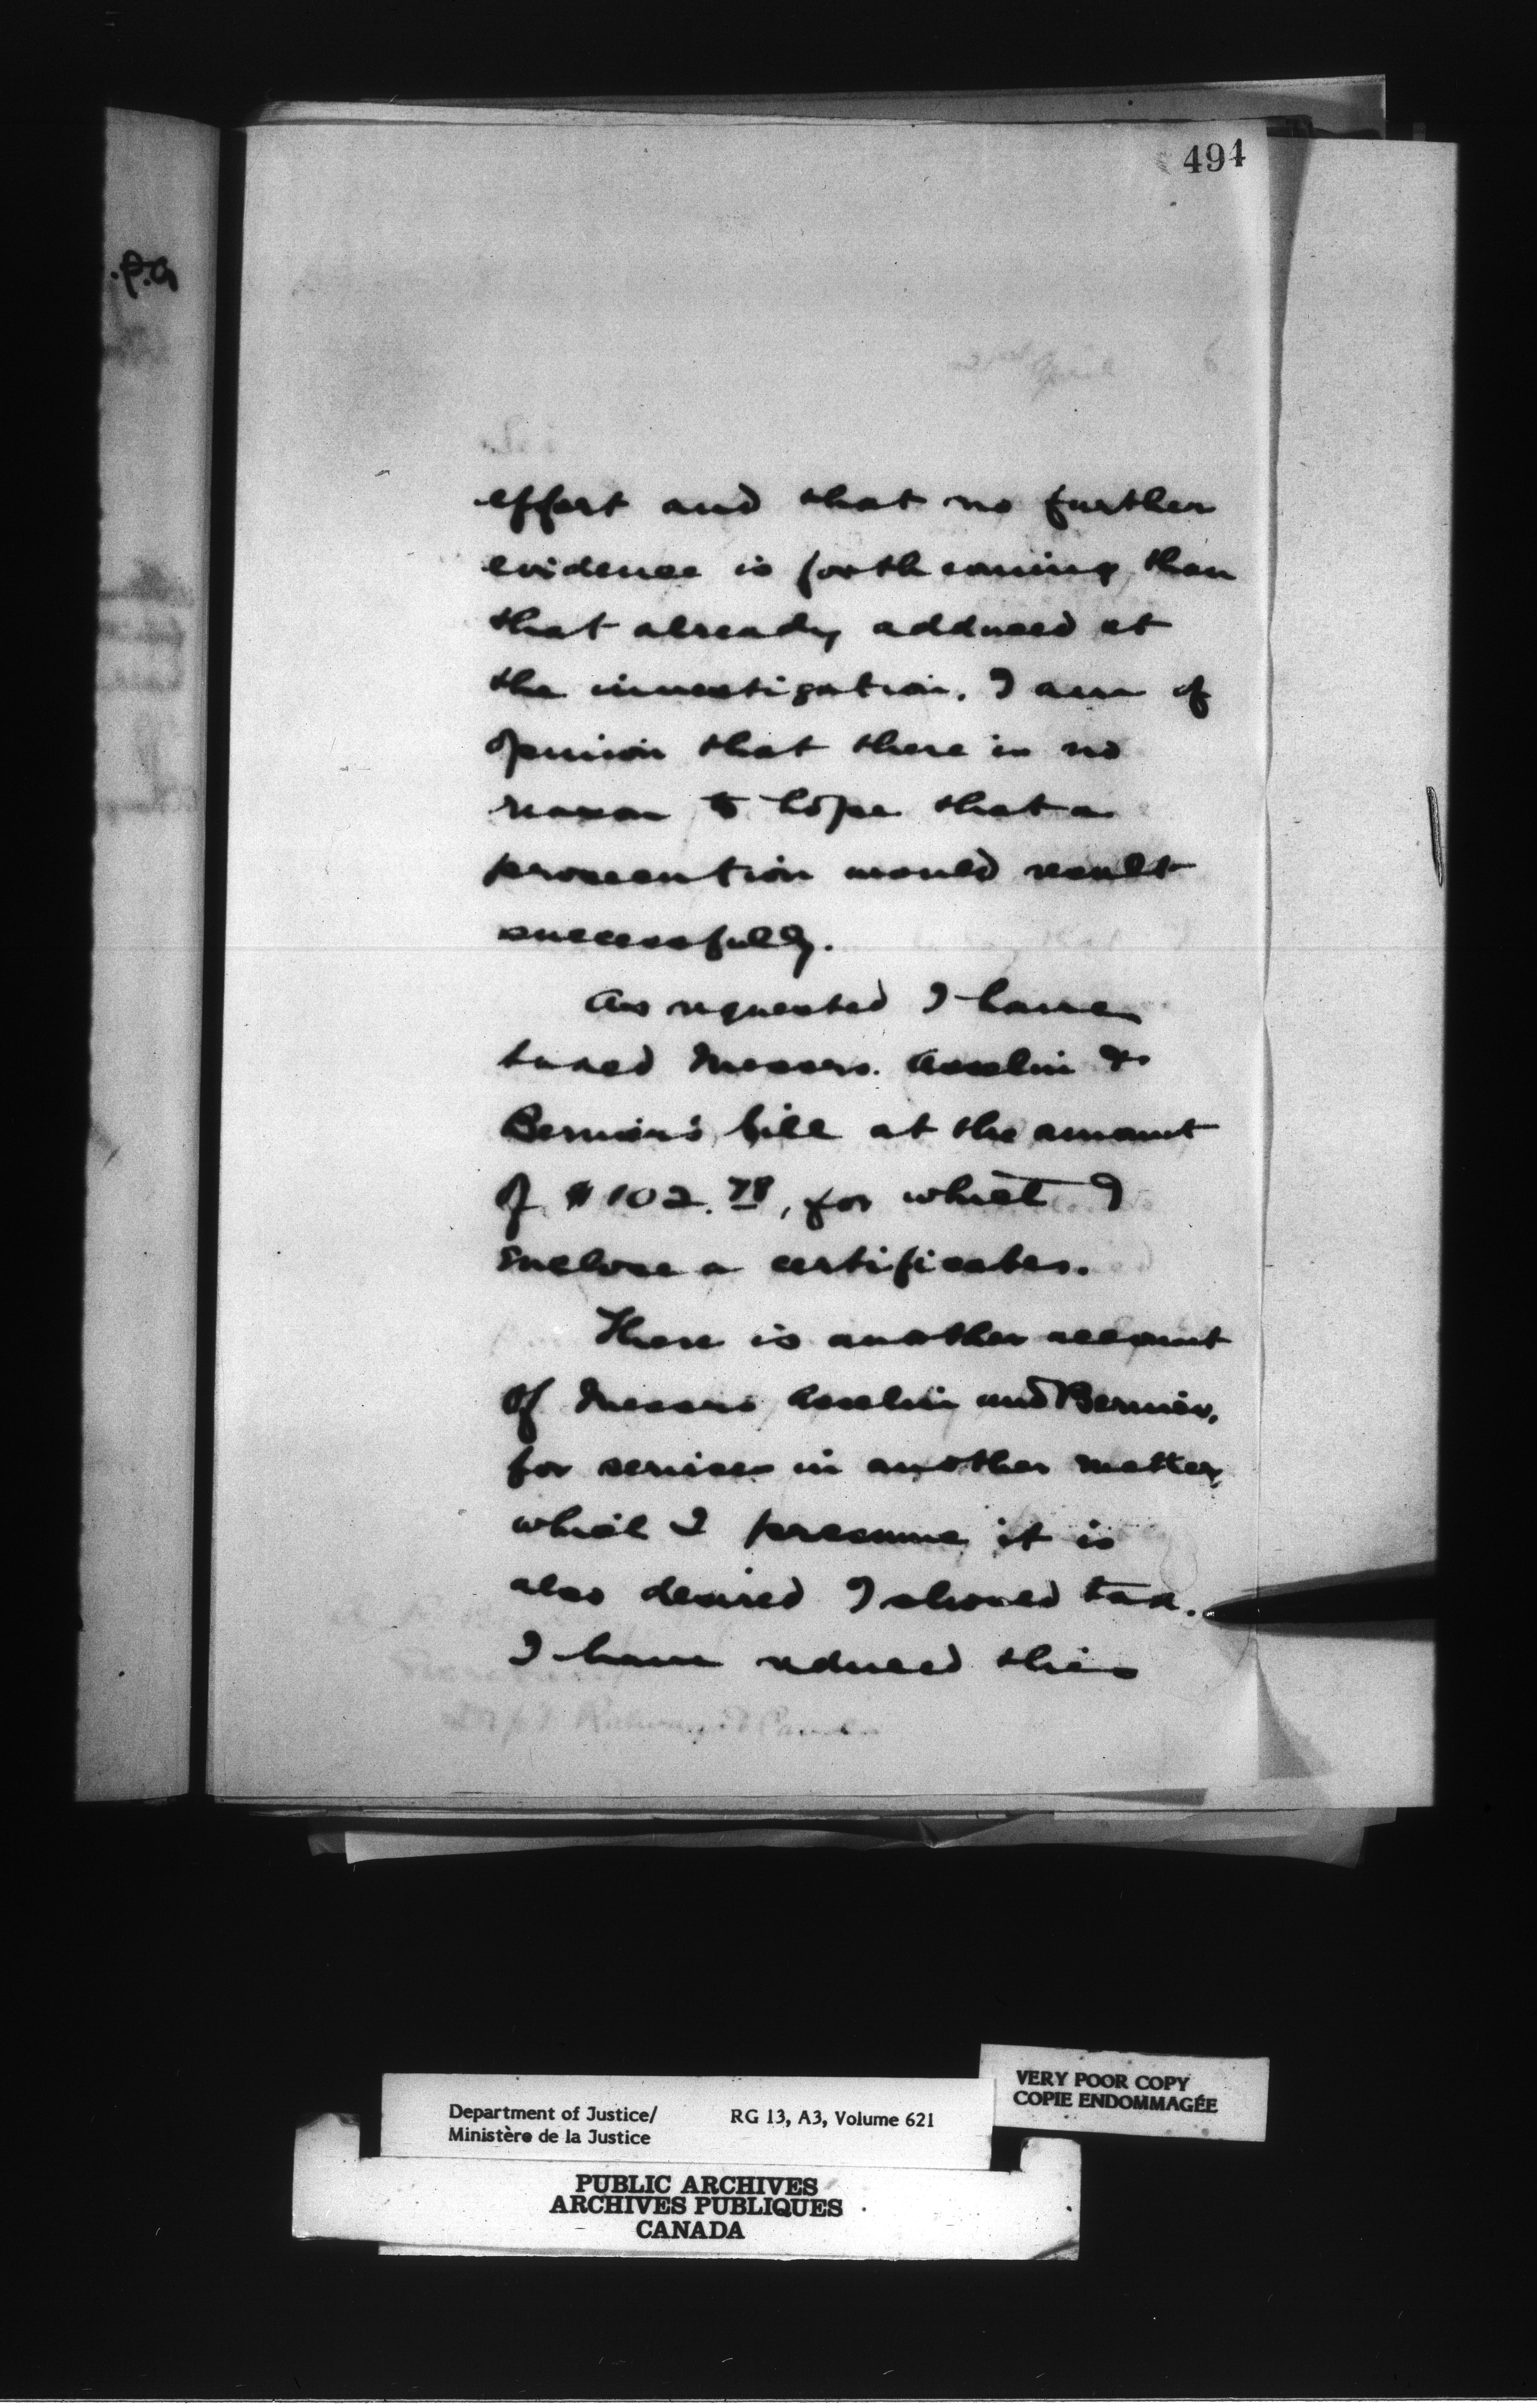 494
effort and that no further
evidence is forthcoming than
that already adduced at
the investigation. I am of
opinion that there is no
reason to hope that a
prosecution would result
successfully.
As requested I have
taxed Messrs. Asselin &
Bernier's bill at the amount
of $102.78, for which I
enclose a certificate.
There is another account
of Messrs Asselin and Bernier,
for services in another matter,
which I presume it is
also desired I should tax.
I have reduced this
VERY POOR COPY
COPIE ENDOMMAGÉE
Department of Justice/
Ministère de la Justice
RG 13, A3, Volume 621
PUBLIC ARCHIVES
ARCHIVES PUBLIQUES
CANADA